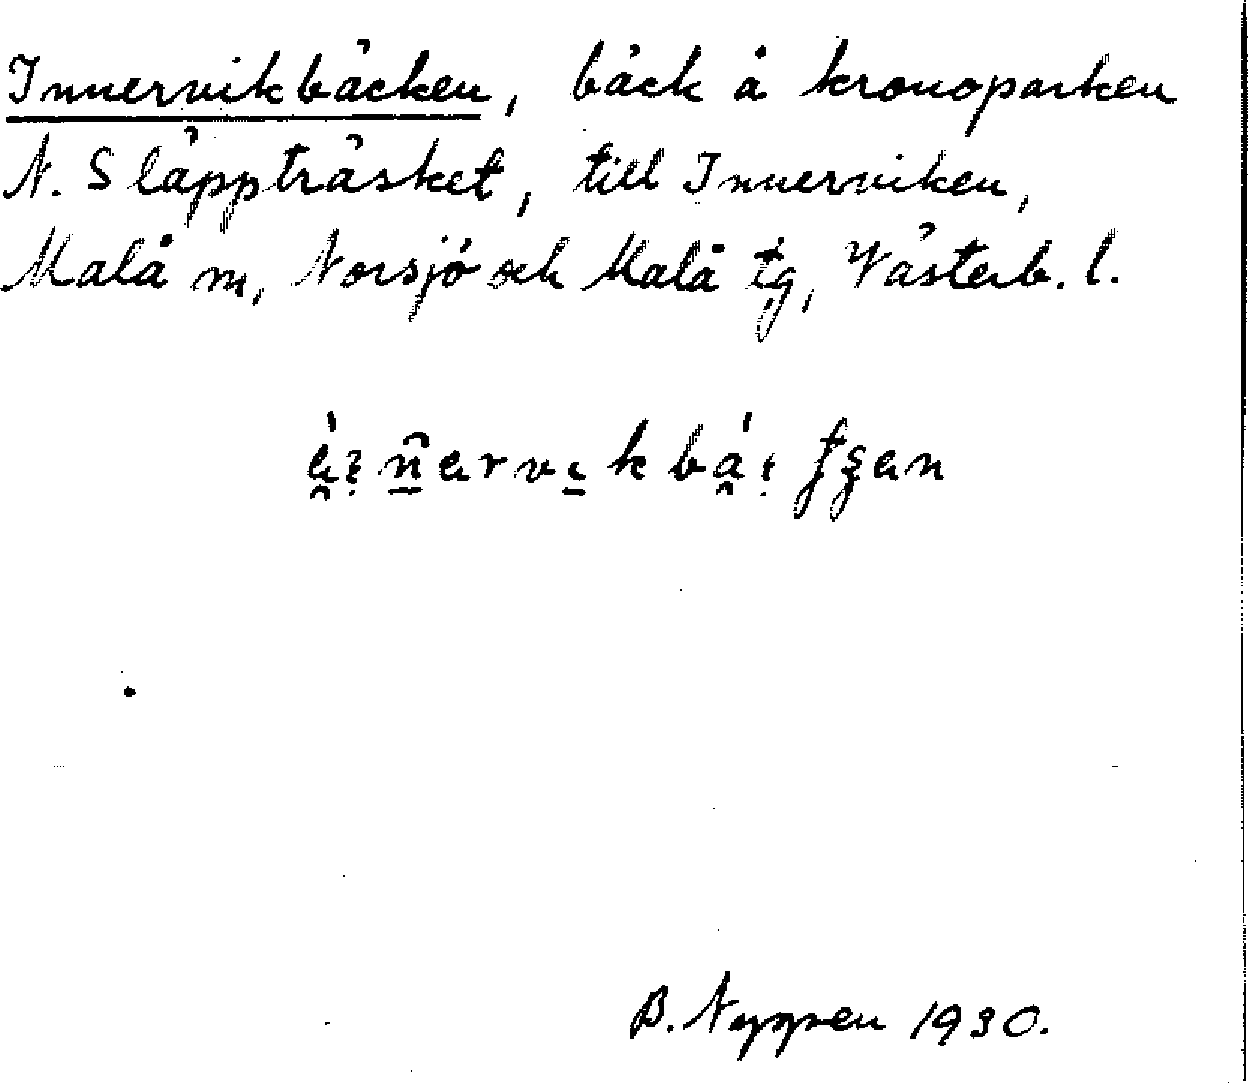 Innervikbäcken, bäck å kronoparken
N. Släppträsket, till Innerviken,
Malå sn, Norsjö och Malå tg, Västerb. l.
B. Nygren 1930.